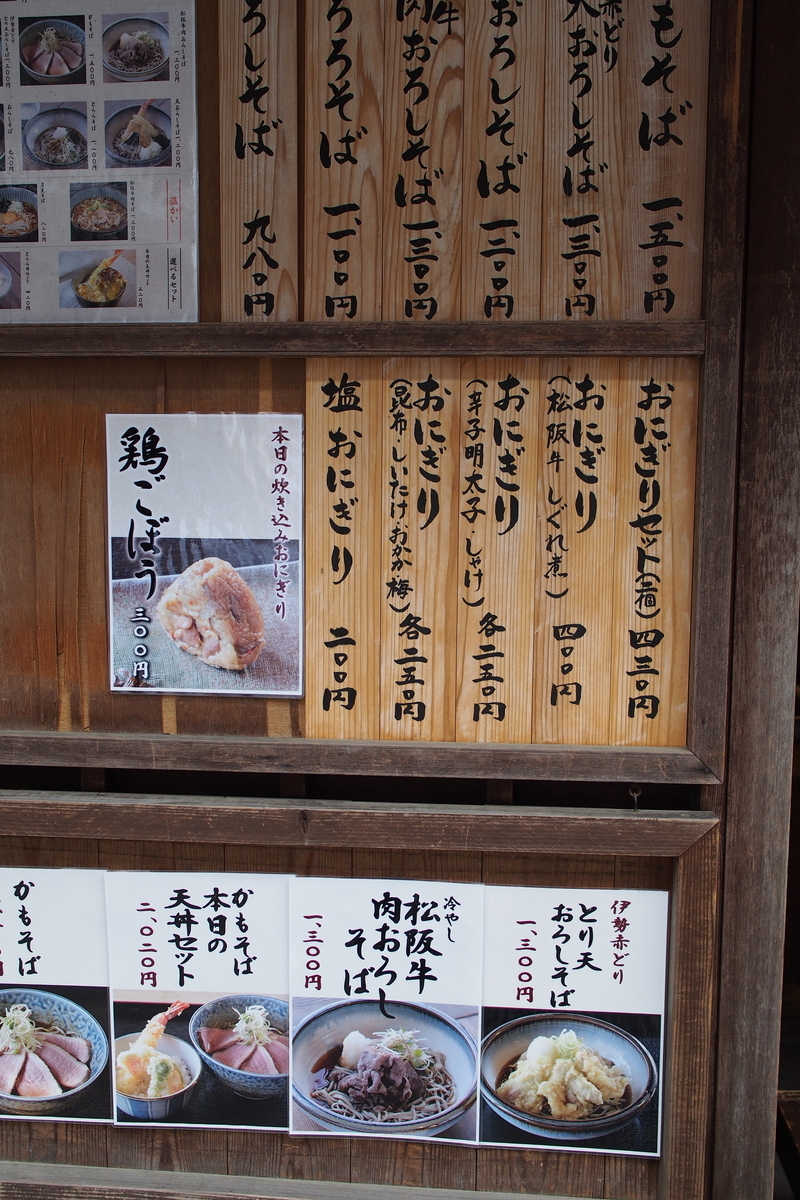 もそば 一、五〇〇円
赤どり
天おろしそば 一、三〇〇円
おろしそば 一、二〇〇円
牛
肉おろしそば 一、三〇〇円
ろろそば 一、一〇〇円
ろしそば 九八〇円
温かい
選べるセット
おにぎりセット(二個) 四三〇円
おにぎり
(松阪牛 しぐれ煮) 四〇〇円
おにぎり
(辛子明太子・しゃけ) 各二五〇円
おにぎり
(昆布・しいたけ・おかか・梅) 各二五〇円
塩おにぎり 二〇〇円
本日の炊き込みおにぎり
鶏ごぼう 三〇〇円
伊勢赤どり
とり天
おろしそば
一、三〇〇円
冷やし
松阪牛
肉おろし
そば
一、三〇〇円
かもそば
本日の
天丼セット
二、〇二〇円
かもそば